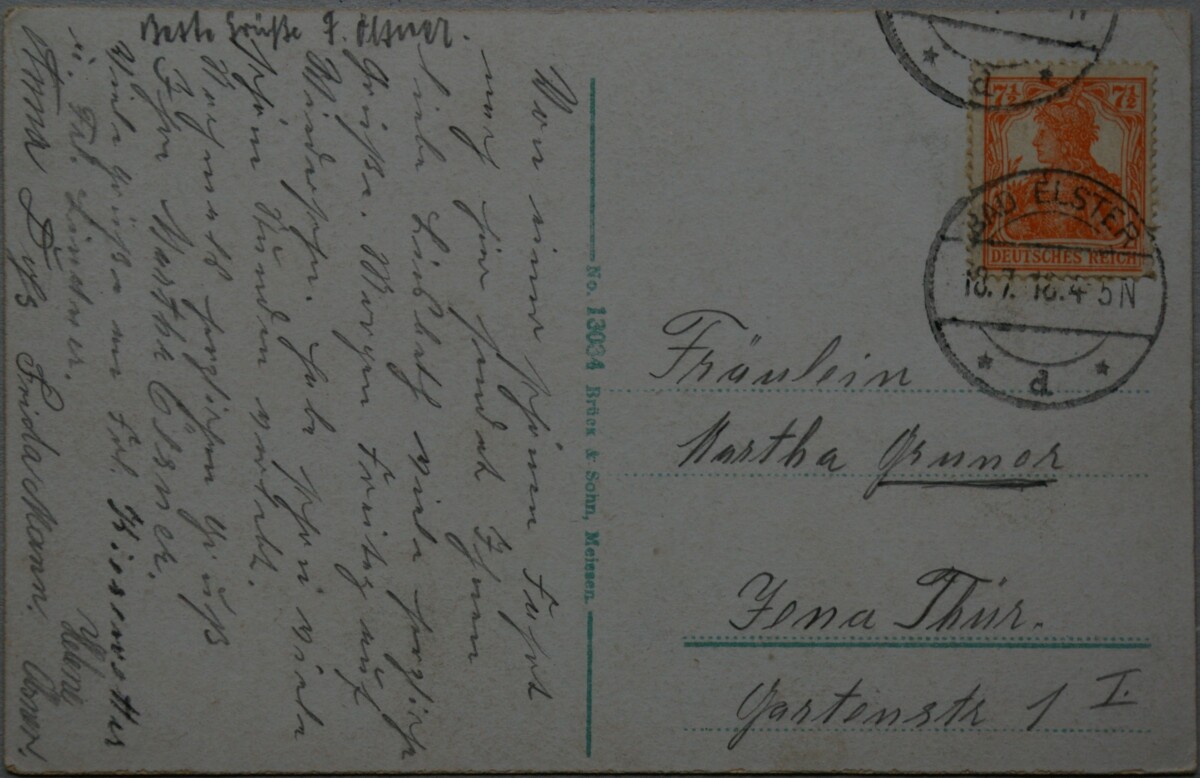 Beste Grüße F. Ölsner.
Von einer schönen Fahrt
nach hier sendet Ihnen
liebe Liesbeth viele herzliche
Grüße. Morgen Freitag auf
Wiedersehn. Habe schon viele
schöne Stunden verlebt.
Nochmals herzlichen Gruß
Ihre Martha Elsner.
Viele Grüße an Frl. Kiesewetter
u. Frl. Lindner.
Anna Frida Mann.
No. 13034 Brück & Sohn, Meissen.
7½ 7½
DEUTSCHES REICH
BAD ELSTER
18.7. 18.4-5N
d
d
N
Fräulein
Martha Grunor
Jena Thür.
Gartenstr 1 I.